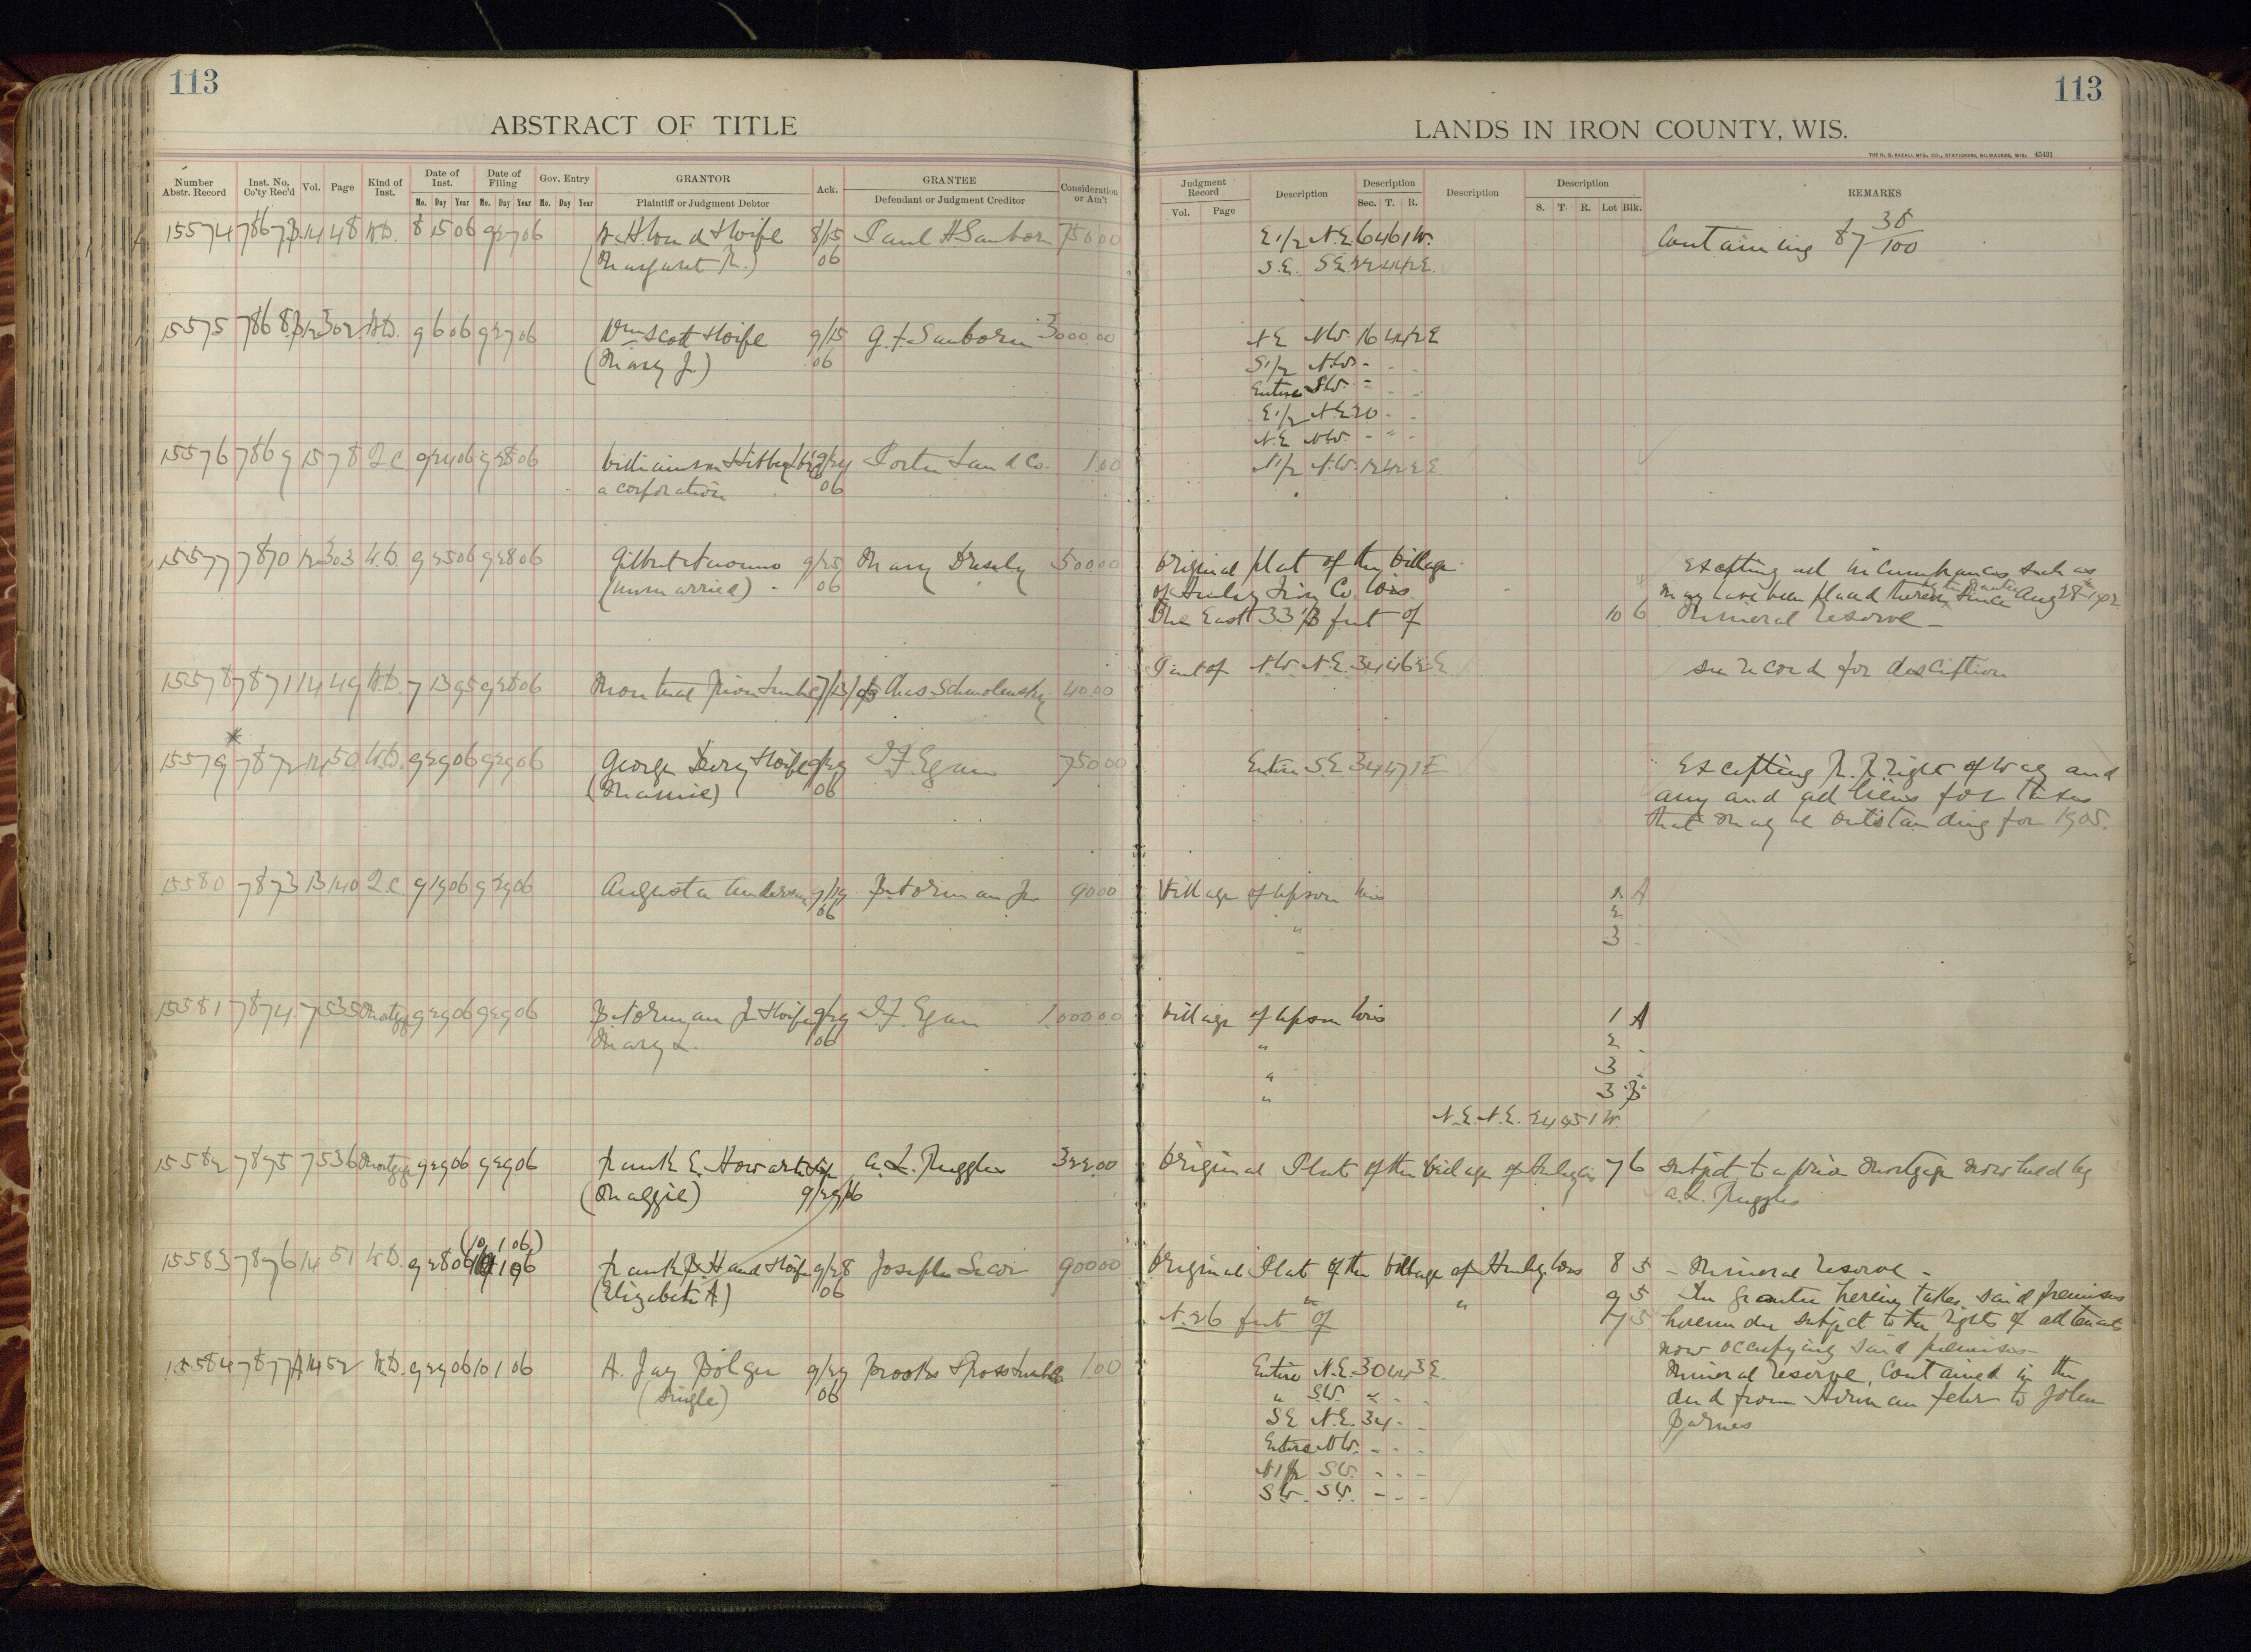 113
ABSTRACT OF TITLE
Number Abstr. Record
Inst. No. Co'ty Rec'd
Vol.
Page
Kind of Inst.
Date of Inst.
Date of Filing
Gov. Entry
GRANTOR
Ack.
GRANTEE
Consideration or Am't
Mo. Day Year Mo. Day Year Mo. Day Year
Plaintiff or Judgment Debtor
Defendant or Judgment Creditor
15574 7867 14 48 W.D. 8 15 06 9 27 06 & Wife 8/15 Paul H Sanborn 750.00
(Margaret R.) 06
15575 7868 12 302 W.D. 9 6 06 9 27 06 Wm Scott & Wife 9/15 G. F. Sanborn 3000.00
(Mary J.) 06
15576 7869 15 78 Q.C. 9 24 06 9 28 06 Williamson 9/24 Porter Land Co. 1.00
a corporation 06
15577 7870 12 303 W.D. 9 25 06 9 28 06 Gilbert 9/25 Mary 500.00
(unmarried) 06
15578 7871 14 49 W.D. 7 13 95 9 28 06 Montreal River Lumber 7/13/95 Chas. Schmolensky 40.00
15579 7872 14 50 W.D. 9 29 06 9 29 06 George & Wife 9/29 I. F. Egan 750.00
(Mamie) 06
15580 7873 13 140 Q.C. 9 19 06 9 29 06 Augusta Anderson 9/19 B. Norman Jr 90.00
06
15581 7874 7 535 Mortg 9 29 06 9 29 06 B. Norman Jr & Wife 9/29 I. F. Egan 1,000.00
Mary L. 06
15582 7875 7 536 Mortgage 9 29 06 9 29 06 Frank E. Howarth & wife A. L. Ruggles 322.00
(Maggie) 9/29/06
(10 1 06)
15583 7876 14 51 W.D. 9 28 06 Frank B. Hand & Wife 9/28 Joseph Secor 900.00
(Elizabeth A.) 06
15584 7877 14 52 W.D. 9 29 06 10 1 06 A. Jay Bolger 9/29 Brooks & Ross Lumber Co 1.00
(single) 06
113
LANDS IN IRON COUNTY, WIS.
THE H. G. RAZALL MFG. CO., STATIONERS, MILWAUKEE, WIS. 45431
Judgment Record
Description
Description
Description
Description
REMARKS
Vol. Page
Sec. T. R.
S. T. R. Lot Blk.
E 1/2 N.E. 6 46 1 W. Containing 87 38/100
S.E. S.E. 22 44 2 E.
N.E N.W. 16 44 2 E
S 1/2 N.W. - - -
Entire S.W. - - -
E 1/2 N.E. 20 - -
N.E N.W. - " -
N 1/2 N.W. 12 42 2 E
Original plat of the Village Excepting all incumbrances such as
of Hurley Iron Co. Wis. may have been placed thereon since Aug 28
The East 33 1/3 feet of 10 6 Mineral reserve -
Part of N.W. N.E. 34 46 2 E see record for desciption
Entire S.E. 34 47 1 E Excepting R. R. right of way and
any and all liens for taxes
that may be outstanding for 1905.
Village of Upson Wis 1 A
" 2
- 3 -
Village of Upson Wis 1 A
" 2 -
" 3 -
" 3 B
N.E. N.E. 24 45 1 W.
Original Plat of the Village of Hurley Wis 7 6 Subject to a prior mortgage now held by
A. L. Ruggles
Original Plat of the Village of Hurley, Wis 8 5 - Mineral reserve -
" " 9 5 The grantee herein takes said premises
N. 26 feet of 7 5 hereunder subject to the rights of all tenants
now occupying said premises -
Entire N.E. 30 44 3 E. Mineral reserve, contained in the
" S.W. " - - deed from Herman Fehr to John
S.E N.E. 34 - - Barnes
Entire N.W. - - -
N 1/2 S.W. - - -
S.W. S.W. - - -